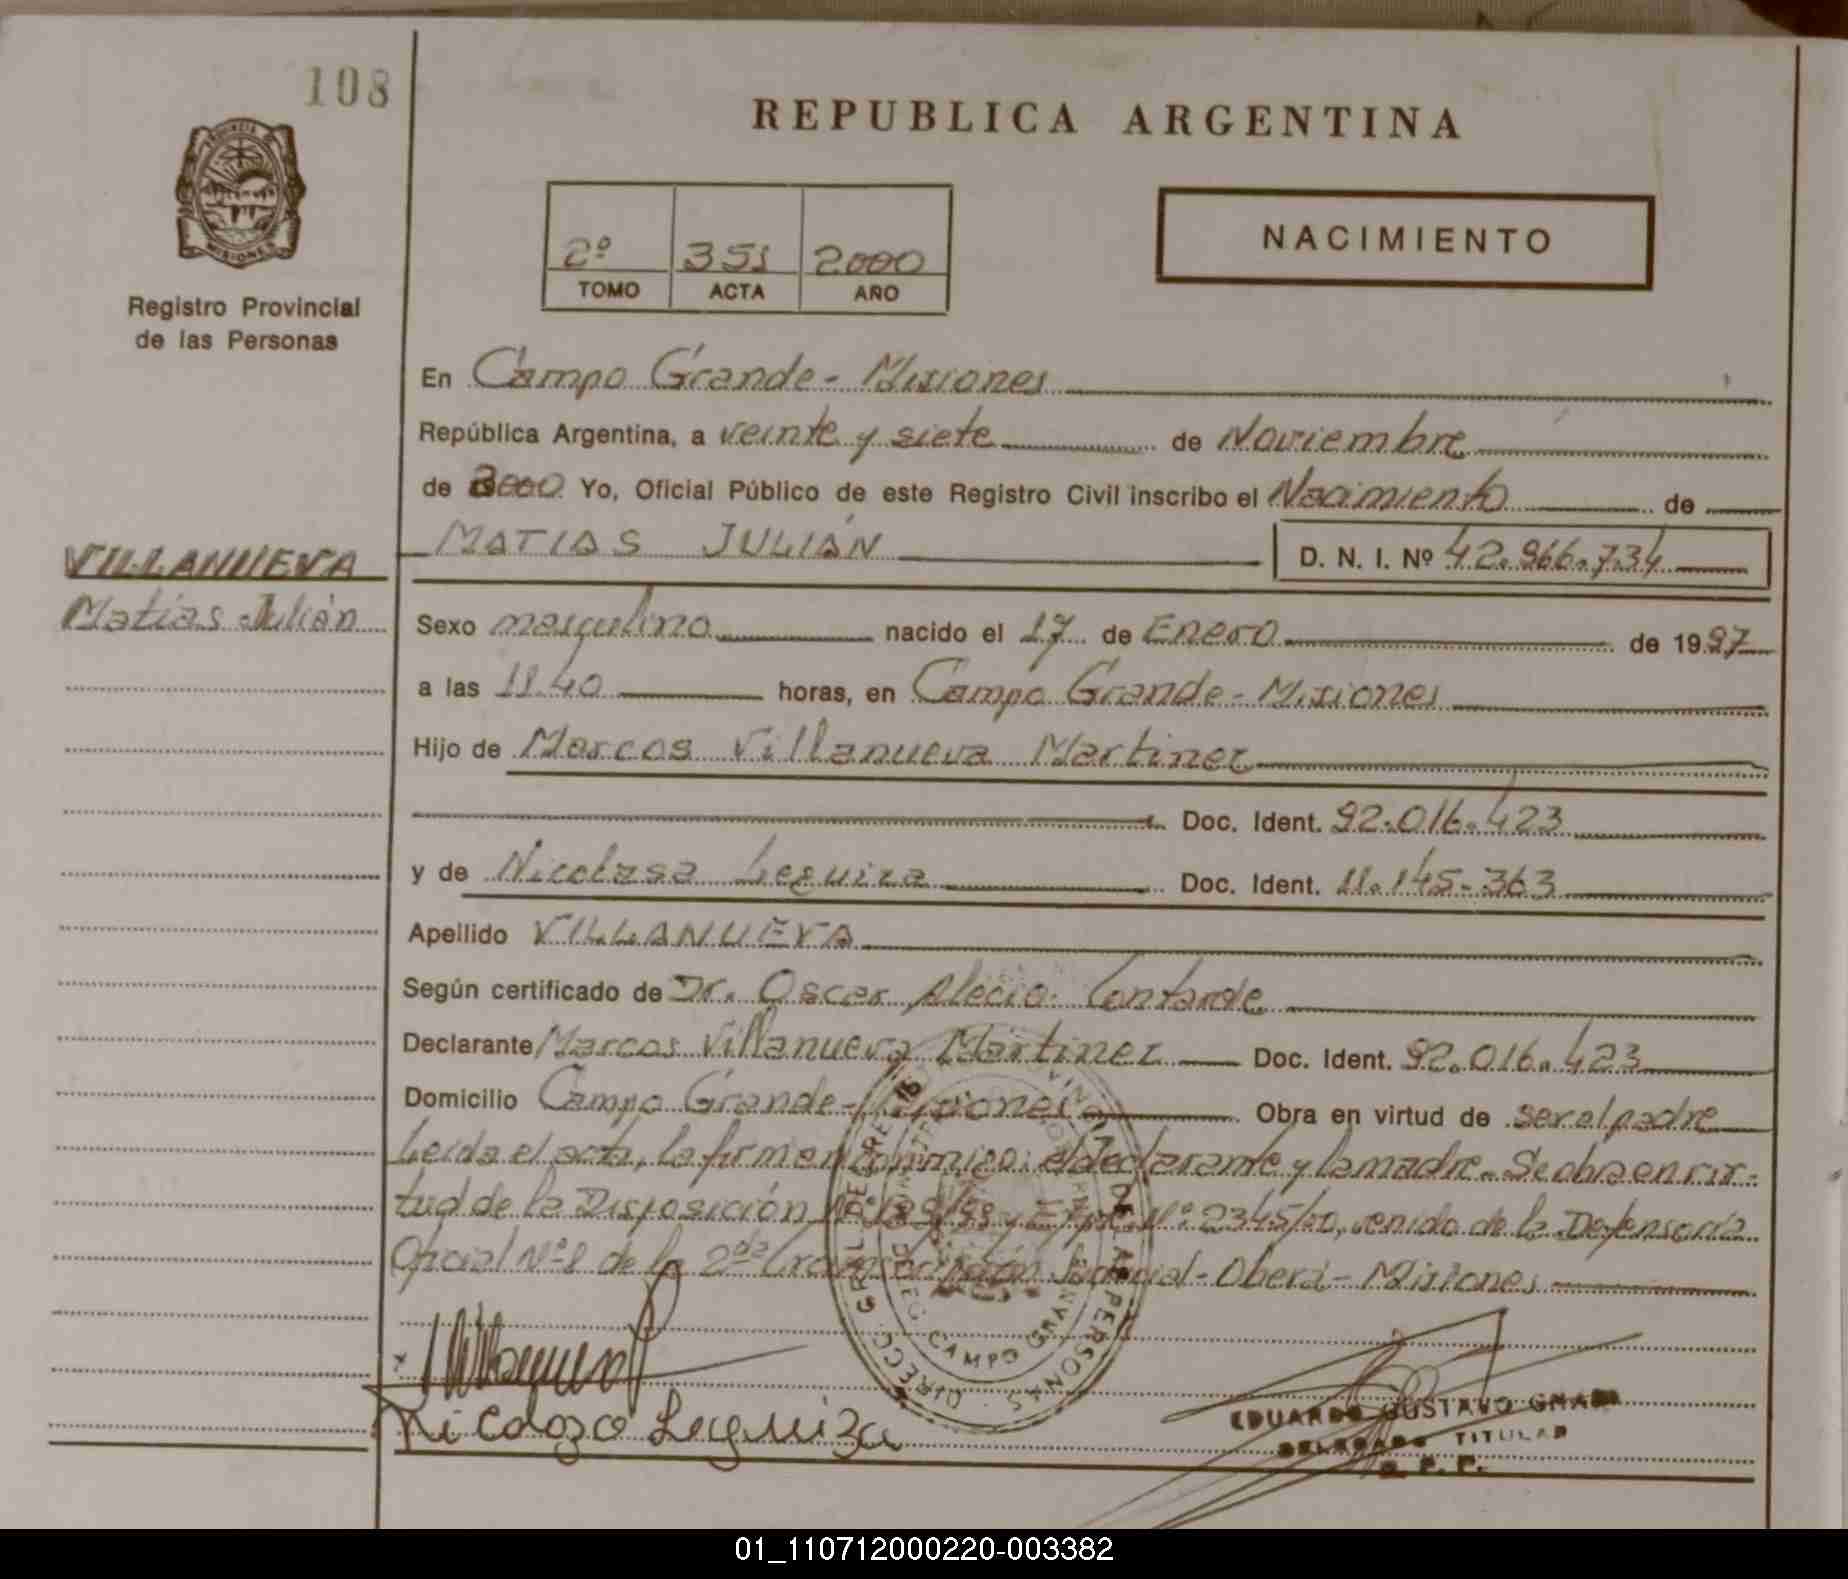 108
REPUBLICA ARGENTINA
PROVINCIA
MISIONES
Registro Provincial
de las Personas
2º 351 2000
TOMO ACTA AÑO
NACIMIENTO
En Campo Grande - Misiones
República Argentina, a veinte y siete de Noviembre
de 2000 Yo, Oficial Público de este Registro Civil inscribo el Nacimiento de
MATIAS JULIÁN D. N. I. Nº 42.966.734
VILLANUEVA
Matías Julián
Sexo masculino nacido el 17 de Enero de 1997
a las 11.40 horas, en Campo Grande - Misiones
Hijo de Marcos Villanueva Martinez
Doc. Ident. 92.016.423
y de Nicolasa Leguiza Doc. Ident. 11.145.363
Apellido VILLANUEVA
Según certificado de Dr. Oscar Alecio Contarde
Declarante Marcos Villanueva Martinez Doc. Ident. 92.016.423
Domicilio Campo Grande - Misiones Obra en virtud de ser el padre
Leída el acta, la firman conmigo: el declarante y la madre. Se obra en vir-
tud de la Disposición y Expte. Nº 2345/00, venido de la Defensoría
Oficial Nº 1 de la 2da Circunscripción Judicial - Oberá - Misiones
CAMPO GRANDE
DE LAS PERSONAS
Nicolaza Leguiza
EDUARDO GUSTAVO
DELEGADO TITULAR
R. P. P.
01_110712000220-003382